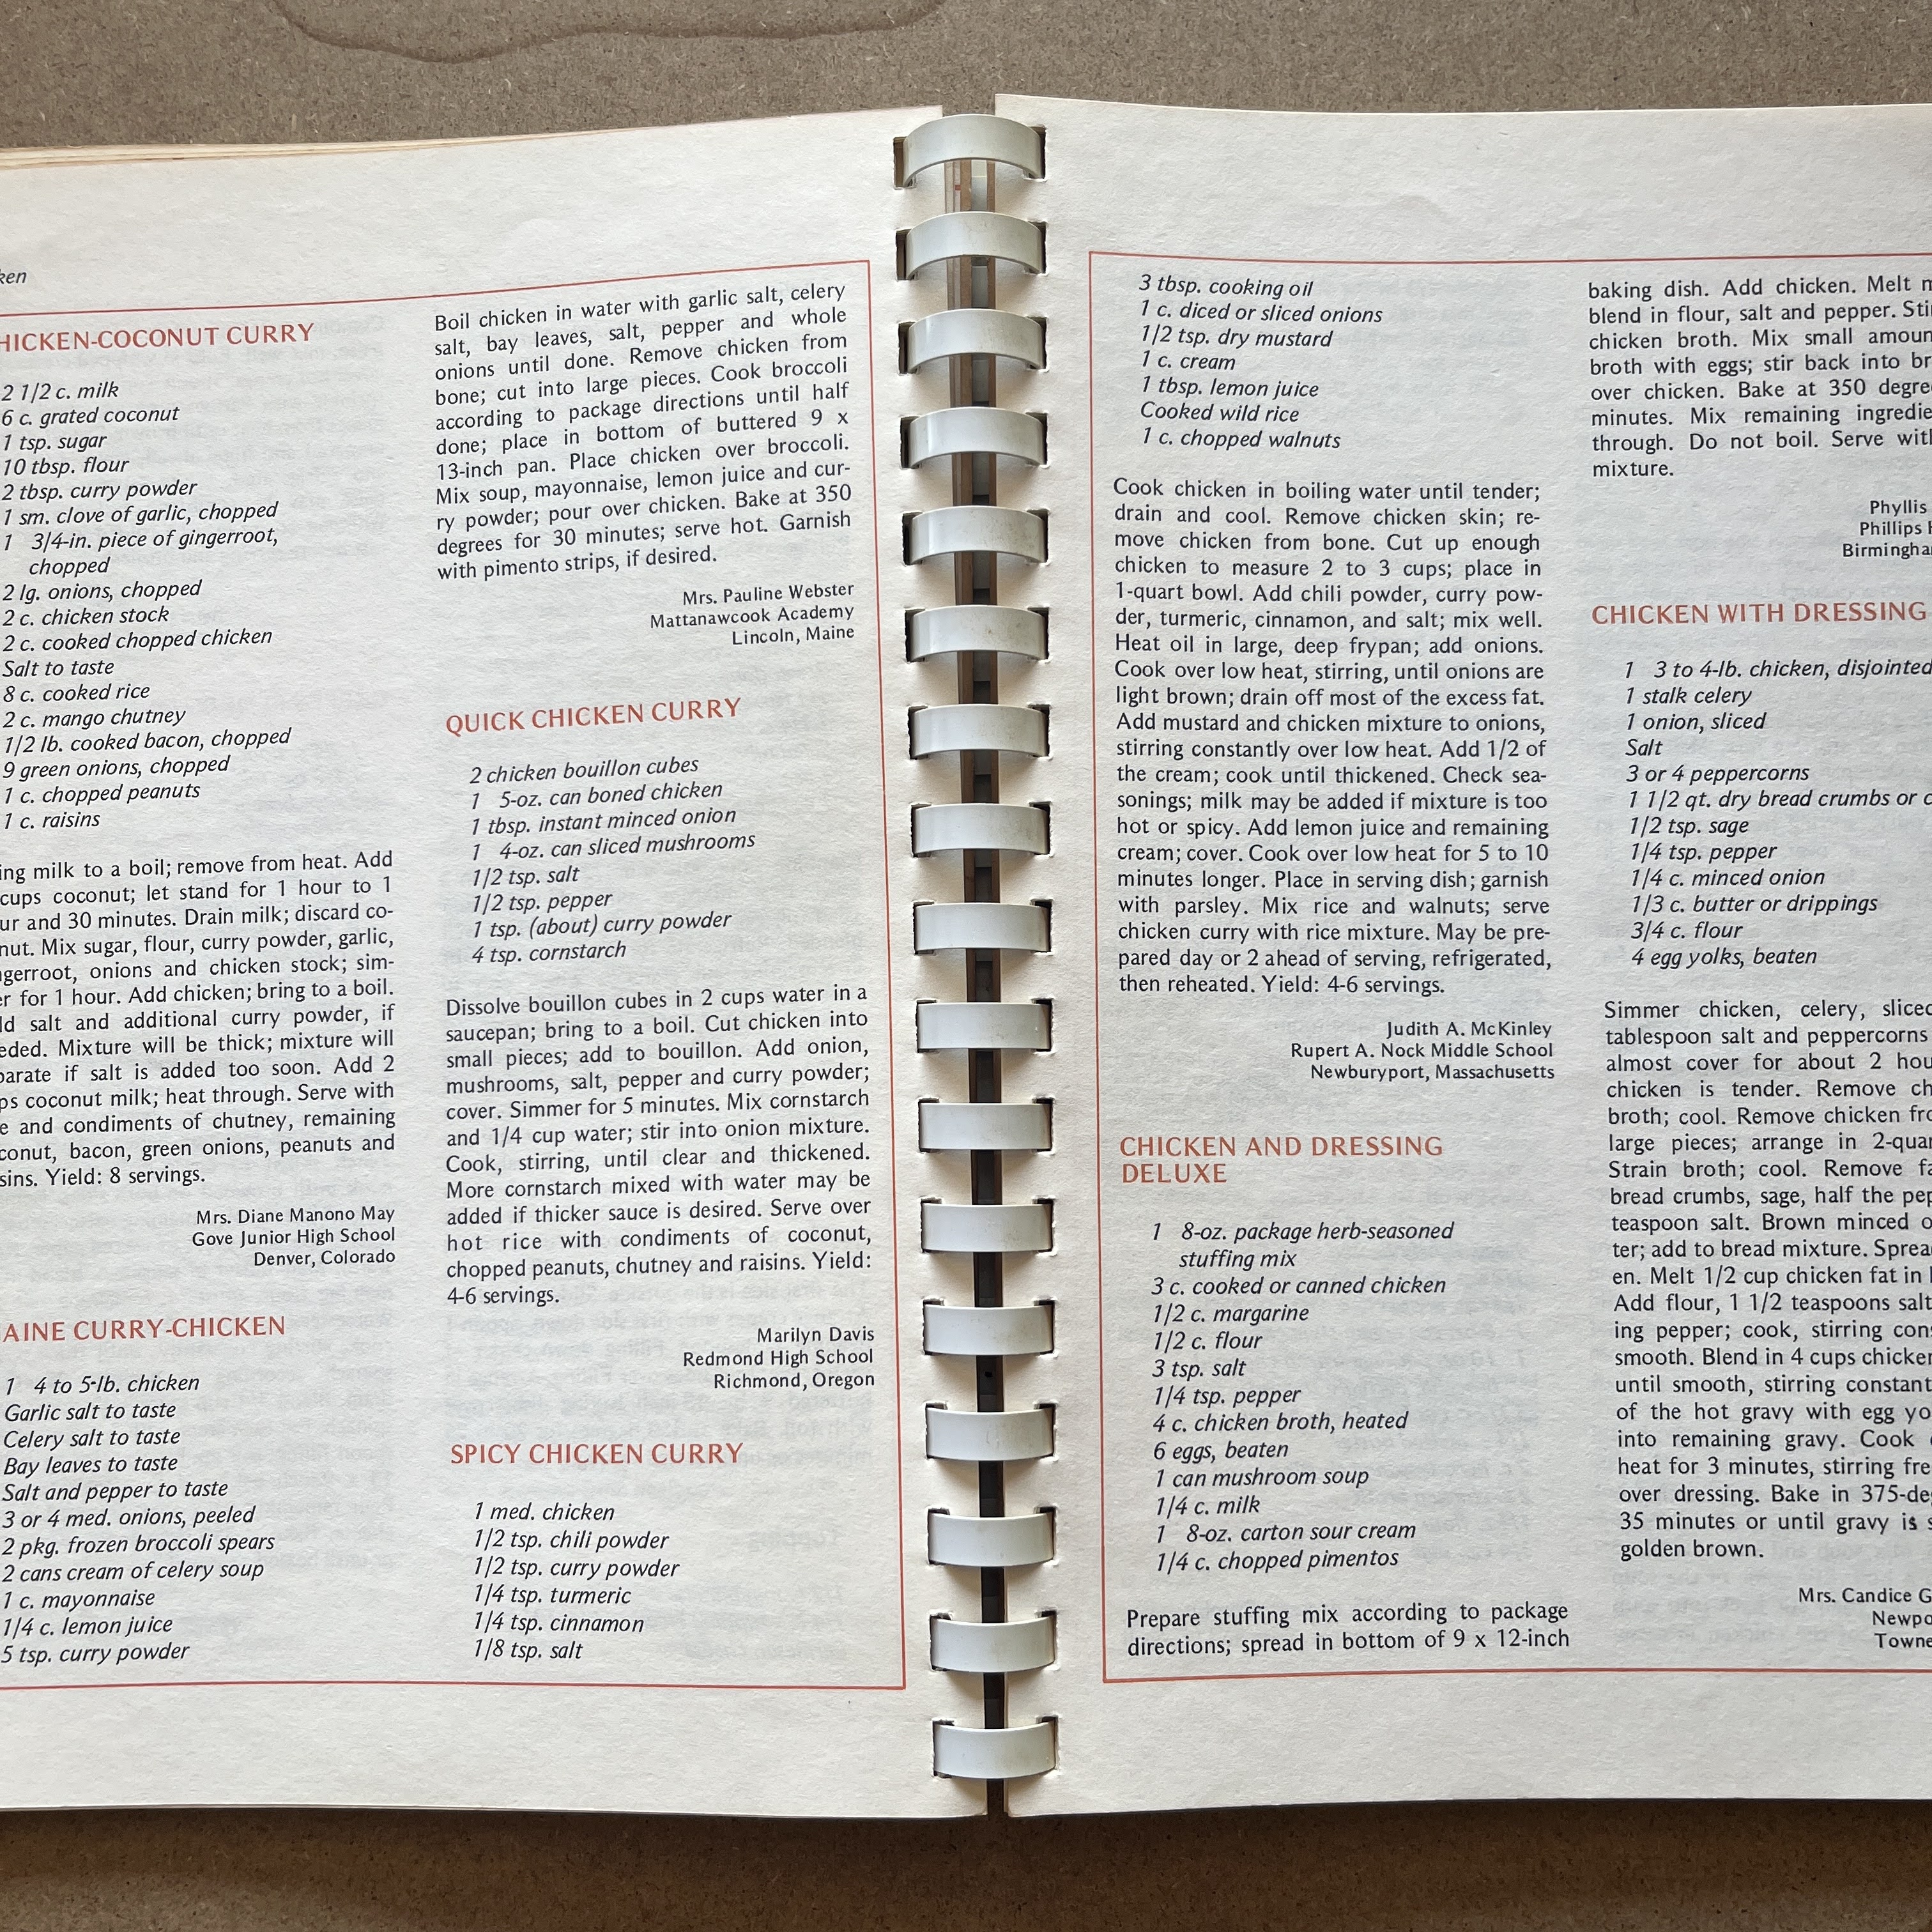 ken
HICKEN-COCONUT CURRY
2 1/2 c. milk
6 c. grated coconut
1 tsp. sugar
10 tbsp. flour
2 tbsp. curry powder
1 sm. clove of garlic, chopped
1 3/4-in. piece of gingerroot,
chopped
2 lg. onions, chopped
2 c. chicken stock
2 c. cooked chopped chicken
Salt to taste
8 c. cooked rice
2 c. mango chutney
1/2 lb. cooked bacon, chopped
9 green onions, chopped
1 c. chopped peanuts
1 c. raisins
ing milk to a boil; remove from heat. Add
cups coconut; let stand for 1 hour to 1
ur and 30 minutes. Drain milk; discard co-
nut. Mix sugar, flour, curry powder, garlic,
ngerroot, onions and chicken stock; sim-
er for 1 hour. Add chicken; bring to a boil.
ld salt and additional curry powder, if
eded. Mixture will be thick; mixture will
parate if salt is added too soon. Add 2
ps coconut milk; heat through. Serve with
e and condiments of chutney, remaining
conut, bacon, green onions, peanuts and
sins. Yield: 8 servings.
Mrs. Diane Manono May
Gove Junior High School
Denver, Colorado
AINE CURRY-CHICKEN
1 4 to 5-lb. chicken
Garlic salt to taste
Celery salt to taste
Bay leaves to taste
Salt and pepper to taste
3 or 4 med. onions, peeled
2 pkg. frozen broccoli spears
2 cans cream of celery soup
1 c. mayonnaise
1/4 c. lemon juice
5 tsp. curry powder
Boil chicken in water with garlic salt, celery
salt, bay leaves, salt, pepper and whole
onions until done. Remove chicken from
bone; cut into large pieces. Cook broccoli
according to package directions until half
done; place in bottom of buttered 9 x
13-inch pan. Place chicken over broccoli.
Mix soup, mayonnaise, lemon juice and cur-
ry powder; pour over chicken. Bake at 350
degrees for 30 minutes; serve hot. Garnish
with pimento strips, if desired.
Mrs. Pauline Webster
Mattanawcook Academy
Lincoln, Maine
QUICK CHICKEN CURRY
2 chicken bouillon cubes
1 5-oz. can boned chicken
1 tbsp. instant minced onion
1 4-oz. can sliced mushrooms
1/2 tsp. salt
1/2 tsp. pepper
1 tsp. (about) curry powder
4 tsp. cornstarch
Dissolve bouillon cubes in 2 cups water in a
saucepan; bring to a boil. Cut chicken into
small pieces; add to bouillon. Add onion,
mushrooms, salt, pepper and curry powder;
cover. Simmer for 5 minutes. Mix cornstarch
and 1/4 cup water; stir into onion mixture.
Cook, stirring, until clear and thickened.
More cornstarch mixed with water may be
added if thicker sauce is desired. Serve over
hot rice with condiments of coconut,
chopped peanuts, chutney and raisins. Yield:
4-6 servings.
Marilyn Davis
Redmond High School
Richmond, Oregon
SPICY CHICKEN CURRY
1 med. chicken
1/2 tsp. chili powder
1/2 tsp. curry powder
1/4 tsp. turmeric
1/4 tsp. cinnamon
1/8 tsp. salt
3 tbsp. cooking oil
1 c. diced or sliced onions
1/2 tsp. dry mustard
1 c. cream
1 tbsp. lemon juice
Cooked wild rice
1 c. chopped walnuts
Cook chicken in boiling water until tender;
drain and cool. Remove chicken skin; re-
move chicken from bone. Cut up enough
chicken to measure 2 to 3 cups; place in
1-quart bowl. Add chili powder, curry pow-
der, turmeric, cinnamon, and salt; mix well.
Heat oil in large, deep frypan; add onions.
Cook over low heat, stirring, until onions are
light brown; drain off most of the excess fat.
Add mustard and chicken mixture to onions,
stirring constantly over low heat. Add 1/2 of
the cream; cook until thickened. Check sea-
sonings; milk may be added if mixture is too
hot or spicy. Add lemon juice and remaining
cream; cover. Cook over low heat for 5 to 10
minutes longer. Place in serving dish; garnish
with parsley. Mix rice and walnuts; serve
chicken curry with rice mixture. May be pre-
pared day or 2 ahead of serving, refrigerated,
then reheated. Yield: 4-6 servings.
Judith A. McKinley
Rupert A. Nock Middle School
Newburyport, Massachusetts
CHICKEN AND DRESSING
DELUXE
1 8-oz. package herb-seasoned
stuffing mix
3 c. cooked or canned chicken
1/2 c. margarine
1/2 c. flour
3 tsp. salt
1/4 tsp. pepper
4 c. chicken broth, heated
6 eggs, beaten
1 can mushroom soup
1/4 c. milk
1 8-oz. carton sour cream
1/4 c. chopped pimentos
Prepare stuffing mix according to package
directions; spread in bottom of 9 x 12-inch
baking dish. Add chicken. Melt m
blend in flour, salt and pepper. Sti
chicken broth. Mix small amoun
broth with eggs; stir back into br
over chicken. Bake at 350 degre
minutes. Mix remaining ingredie
through. Do not boil. Serve with
mixture.
Phyllis
Phillips H
Birmingha
CHICKEN WITH DRESSING
1 3 to 4-lb. chicken, disjointed
1 stalk celery
1 onion, sliced
Salt
3 or 4 peppercorns
1 1/2 qt. dry bread crumbs or c
1/2 tsp. sage
1/4 tsp. pepper
1/4 c. minced onion
1/3 c. butter or drippings
3/4 c. flour
4 egg yolks, beaten
Simmer chicken, celery, sliced
tablespoon salt and peppercorns
almost cover for about 2 hou
chicken is tender. Remove ch
broth; cool. Remove chicken fro
large pieces; arrange in 2-quar
Strain broth; cool. Remove fa
bread crumbs, sage, half the pep
teaspoon salt. Brown minced o
ter; add to bread mixture. Sprea
en. Melt 1/2 cup chicken fat in
Add flour, 1 1/2 teaspoons salt
ing pepper; cook, stirring cons
smooth. Blend in 4 cups chicken
until smooth, stirring constant
of the hot gravy with egg yo
into remaining gravy. Cook
heat for 3 minutes, stirring fre
over dressing. Bake in 375-deg
35 minutes or until gravy is s
golden brown.
Mrs. Candice G
Newpo
Towne